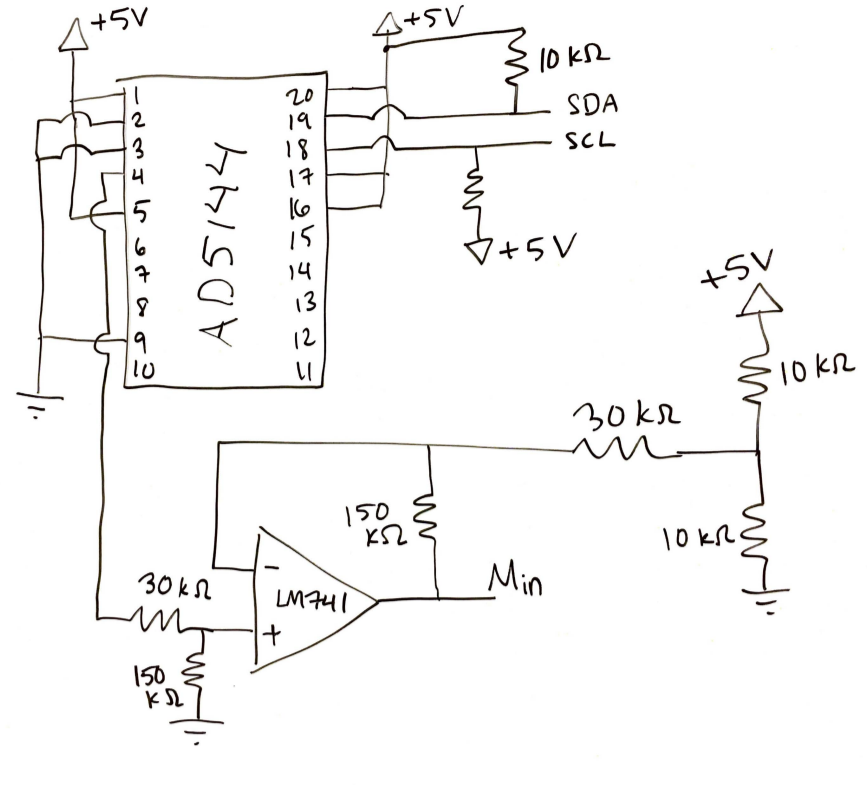 +5V
+5V
10 kΩ
SDA
SCL
1
2
3
4
5
6
7
8
9
10
AD5144
20
19
18
17
16
15
14
13
12
11
+5V
+5V
10 kΩ
30 kΩ
10 kΩ
150
kΩ
-
LM741
+
Min
30 kΩ
150
kΩ